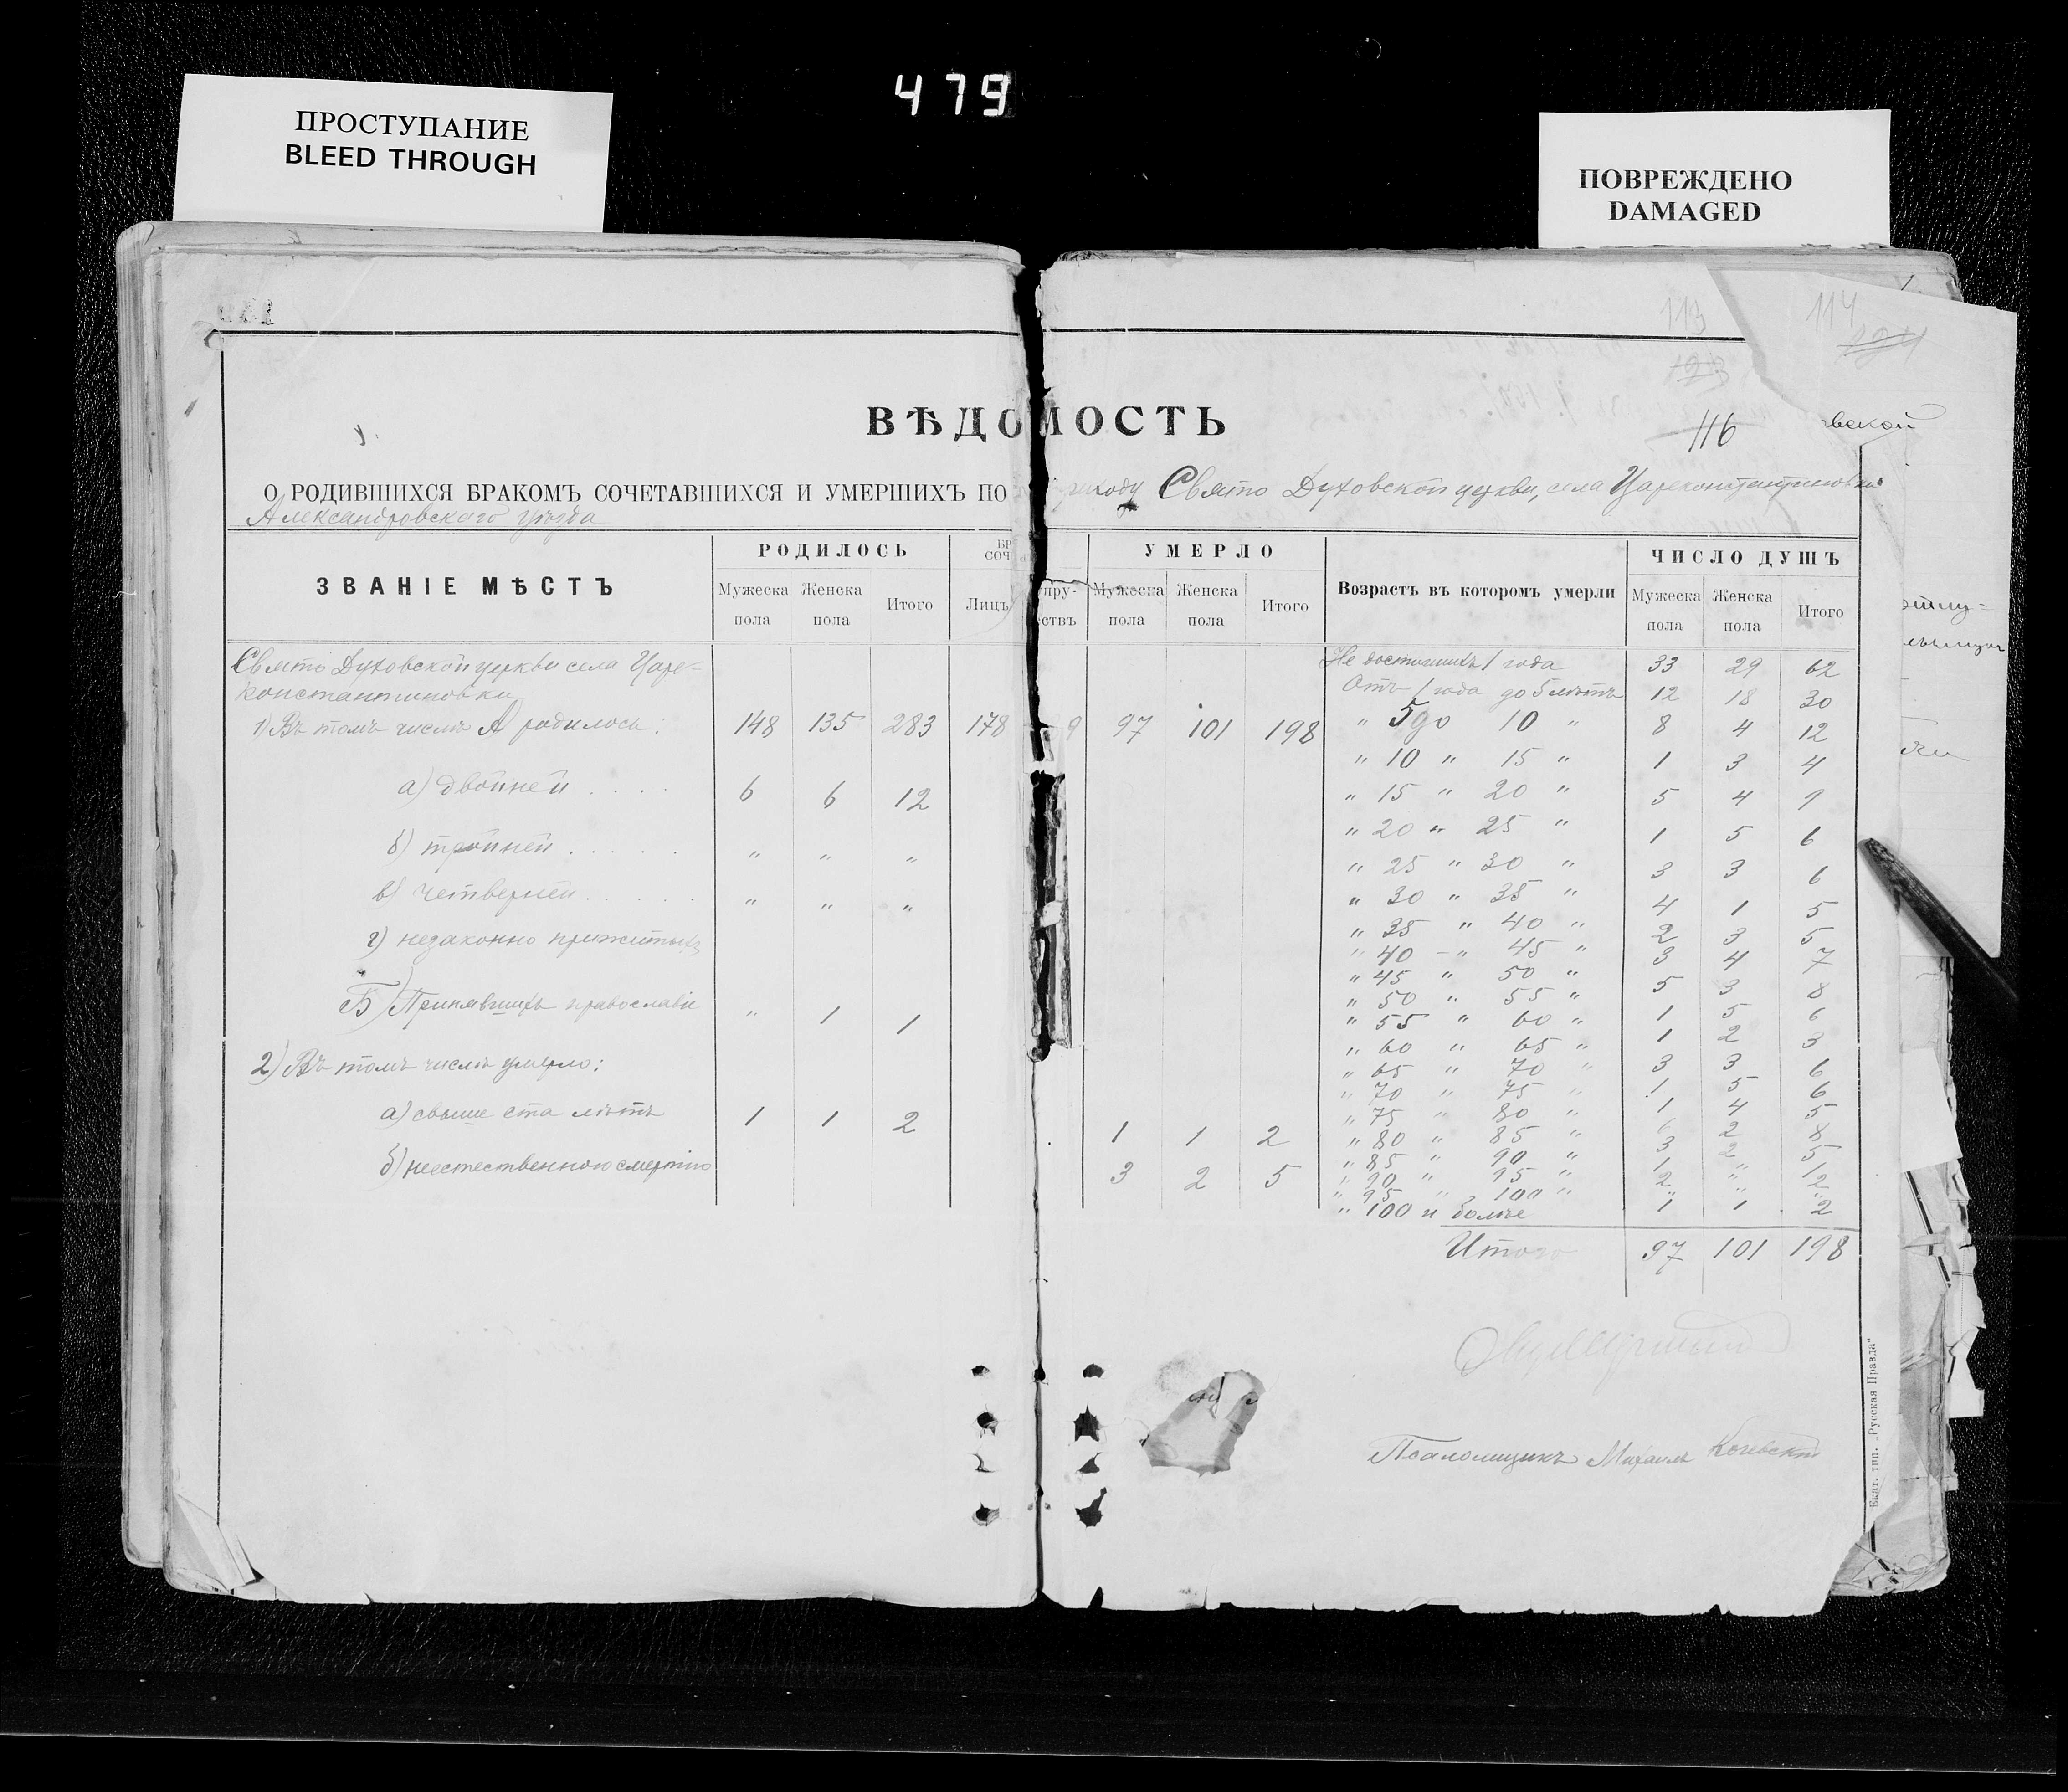 479
ПРОСТУПАНИЕ
BLEED THROUGH
ПОВРЕЖДЕНО
DAMAGED
113
114
123
124
116
вской
ВѢДОМОСТЬ
О РОДИВШИХСЯ БРАКОМЪ СОЧЕТАВШИХСЯ И УМЕРШИХЪ ПО приходу Свято Духовской церкви, села Цареконстантиновки
Александровского уѣзда
ЗВАНІЕ МѢСТЪ
РОДИЛОСЬ
БР
СОЧ
УМЕРЛО
Возрастъ въ которомъ умерли
ЧИСЛО ДУШЪ
Мужеска пола Женска пола Итого Лицъ пру-ствъ Мужеска пола Женска пола Итого Мужеска пола Женска пола Итого
Свято Духовской церкви села Царе-
константиновки
1) Въ томъ числѣ А) родилось: 148 135 283 178 9 97 101 198
а) двойней . . . . 6 6 12
б) тройней . . . . . " " "
в) четверней . . . . . " " "
г) незаконно прижитыхъ
Б) Принявшихъ православіе " 1 1
2) Въ томъ числѣ умерло:
а) свыше ста лѣтъ 1 1 2 1 1 2
б) неестественною смертію 3 2 5
Не достигшихъ 1 года 33 29 62
Отъ 1 года до 5 лѣтъ 12 18 30
" 5 до 10 " 8 4 12
" 10 " 15 " 1 3 4
" 15 " 20 " 5 4 9
" 20 " 25 " 1 5 6
" 25 " 30 " 3 3 6
" 30 " 35 " 4 1 5
" 35 " 40 " 2 3 5
" 40 " 45 " 3 4 7
" 45 " 50 " 5 3 8
" 50 " 55 " 1 5 6
" 55 " 60 " 1 2 3
" 60 " 65 " 3 3 6
" 65 " 70 " 1 5 6
" 70 " 75 " 1 4 5
" 75 " 80 " 6 2 8
" 80 " 85 " 3 2 5
" 85 " 90 " 1 " 1
" 90 " 95 " 2 " 2
" 95 " 100 " " " "
" 100 и болѣе 1 1 2
Итого 97 101 198
Псаломщикъ Михаилъ
Екат. тип. „Русская Правда"